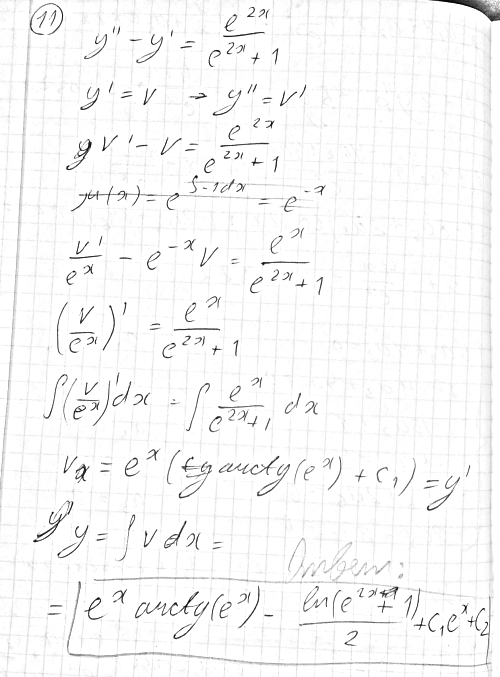 11
y'' - y' = e^{2x} / (e^{2x} + 1)
y' = v → y'' = v'
v' - v = e^{2x} / (e^{2x} + 1)
μ(x) = e^{∫-1dx} = e^{-x}
v' / e^x - e^{-x} v = e^x / (e^{2x} + 1)
(v / e^x)' = e^x / (e^{2x} + 1)
∫(v / e^x)' dx = ∫ e^x / (e^{2x} + 1) dx
v = e^x (arctg(e^x) + c_1) = y'
y = ∫ v dx =
Ответ:
= e^x arctg(e^x) - ln(e^{2x} + 1) / 2 + c_1 e^x + c_2